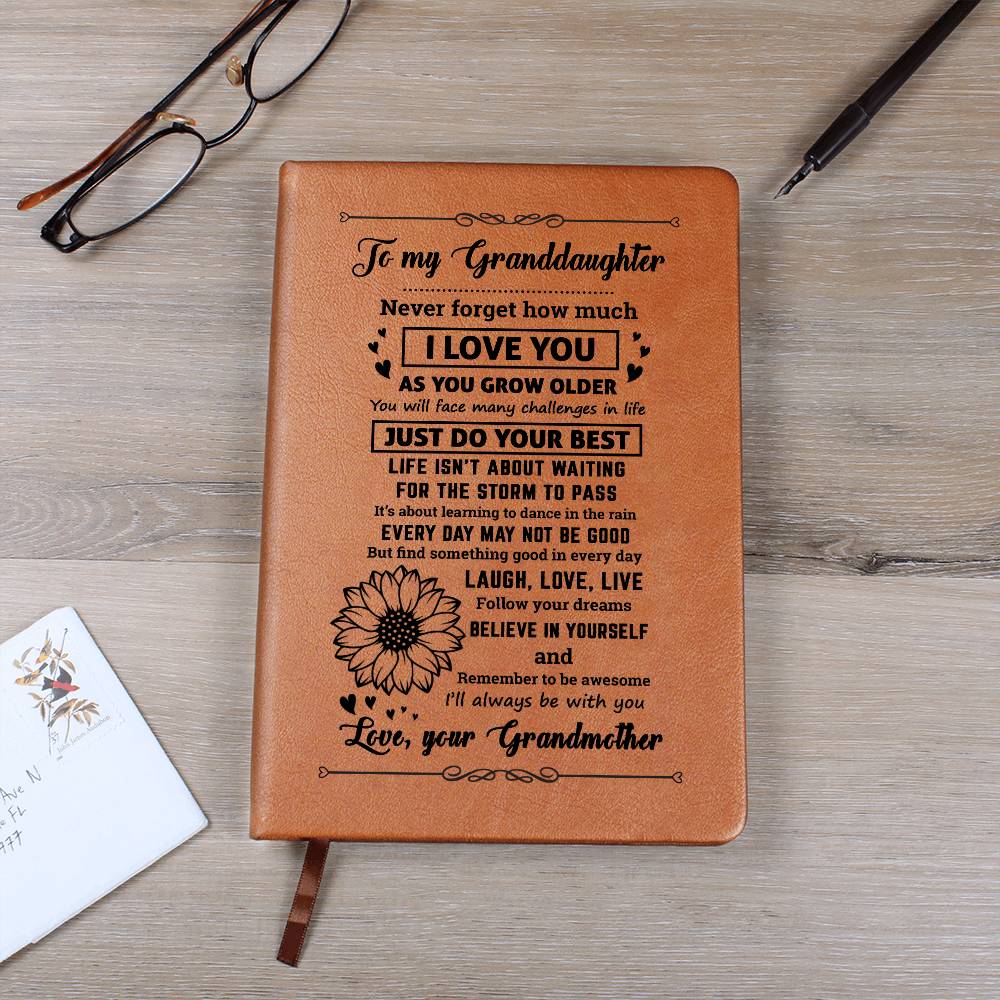 To my Granddaughter
Never forget how much
I LOVE YOU
AS YOU GROW OLDER
You will face many challenges in life
JUST DO YOUR BEST
LIFE ISN'T ABOUT WAITING
FOR THE STORM TO PASS
It's about learning to dance in the rain
EVERY DAY MAY NOT BE GOOD
But find something good in every day
LAUGH, LOVE, LIVE
Follow your dreams
BELIEVE IN YOURSELF
and
Remember to be awesome
I'll always be with you
Love, your Grandmother
37
John James Audubon
Ave N
FL
977